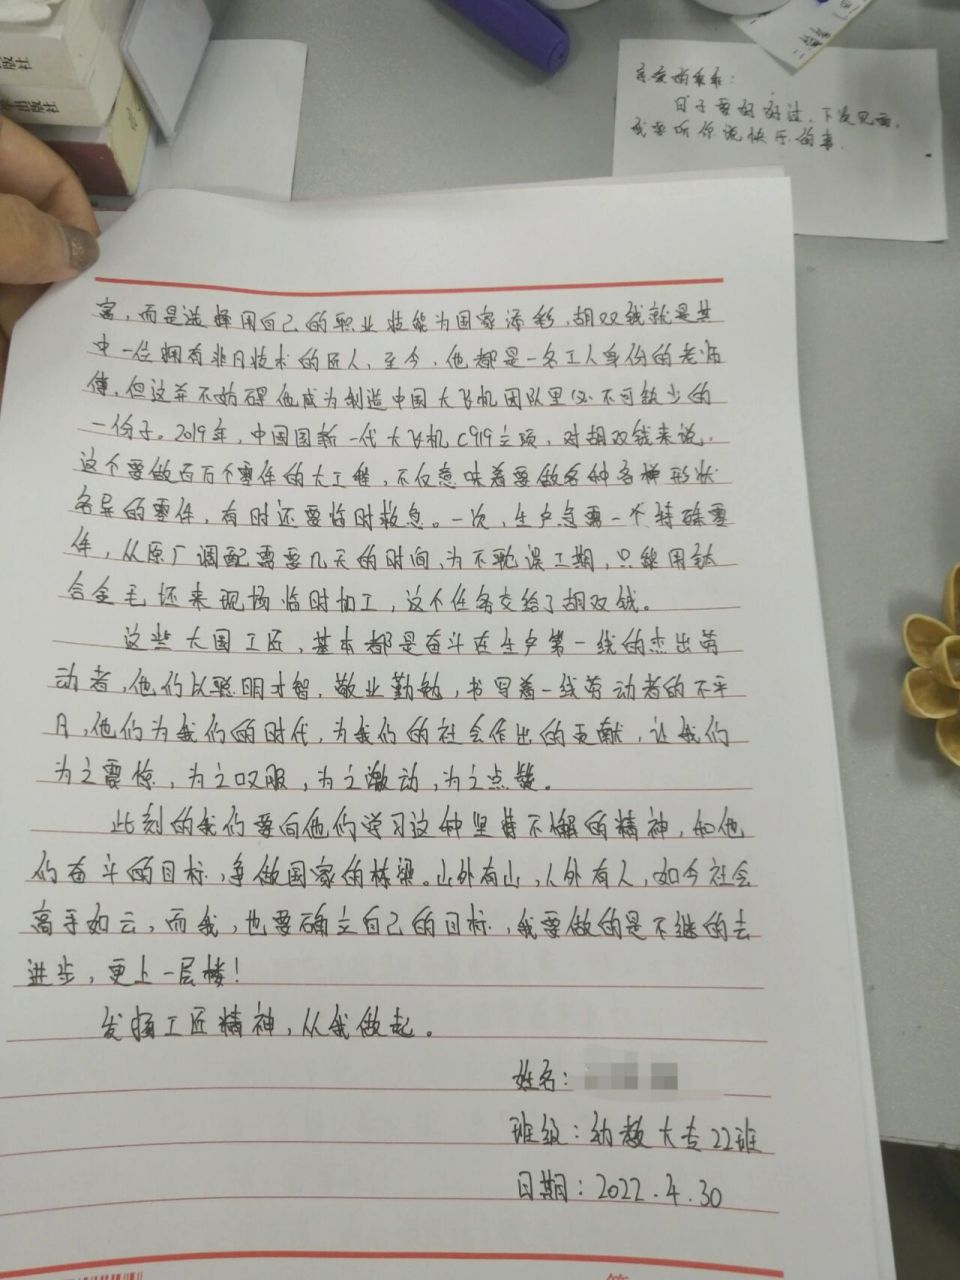 版社
出版社
亲爱的乖乖：
日子要好好过，下次见面，
我要听你说快乐的事.
富，而是选择用自己的职业技能为国家添彩，胡双钱就是其
中一位拥有非凡技术的匠人，至今，他都是一名工人身份的老师
傅，但这并不妨碍他成为制造中国大飞机团队里必不可缺少的
一份子。2019年，中国国新一代大飞机C919立项，对胡双钱来说，
这个要做百万个零件的大工程，不仅意味着要做各种各样形状
各异的零件，有时还要临时救急。一次，生产急需一个特殊零
件，从原厂调配需要几天的时间，为不耽误工期，只能用钛
合金毛坯来现场临时加工，这个任务交给了胡双钱。
这些大国工匠，基本都是奋斗在生产第一线的杰出劳
动者，他们以聪明才智，敬业勤勉，书写着一线劳动者的不平
凡，他们为我们的时代，为我们的社会作出的贡献，让我们
为之震惊，为之叹服，为之激动，为之点赞。
此刻的我们要向他们学习这种坚持不懈的精神，和他
们奋斗的目标，争做国家的栋梁。山外有山，人外有人，如今社会
高手如云，而我，也要确立自己的目标，我要做的是不继的去
进步，更上一层楼！
发扬工匠精神，从我做起。
姓名：
班级：幼教大专22班
日期：2022.4.30
第